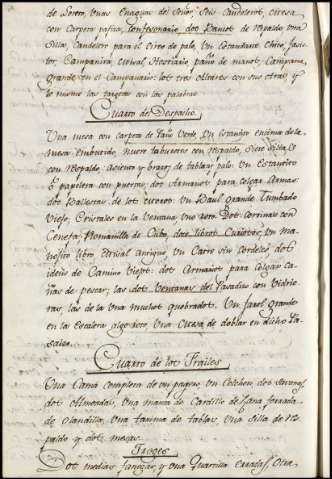 de Santo, Unas Enaguas del Señor, Seis Candeleros, una mesa
con Carpeta pajiza, Confesonario, dos Bancos de respaldo, una
Silla, Candelero para el Cirio de palo, Un Estandarte
Campanita, Misal, paño de manos, Campana
grande en el Campanario: los tres Altares con sus Aras, y
lo mismo las tarjetas con las palabras.
Cuarto del Despacho.
Una mesa con carpeta de Paño Verde, Un Estantito encima de la
mesa Embutido, nueve taburetes con respaldo, Siete Sillas
con respaldo, Asiento y brazos de tablas, palo. Un Estantito
ó papelera con puertas, dos Armarios para colgar Armas:
dos Ballestas de los Un Baul grande Tumbado
Viejo, Cristales en la Ventana, dos Cortinas con
Cenefa, Romanilla de Cubo, doce libros Un
libro Misal antiguo, Un Catre sin cordeles, dos
idem de Camino Viejos: dos Armarios para colgar
Cañas de pescar, las dos Ventanas del con Vidrie-
ras, las de la una muchos quebrados. Un farol grande
en la Escalera Una mesa de doblar en dicho
Cuarto de los Frailes
Una Cama completa de un Colchon, dos Savanas,
dos Almoadas, Una manta de Cordillo de Lana forrada
de Olandilla, Una tarima de tablas, Una Silla de res-
paldo y dos mesas.
Dos medias fanegas, y una quartilla erradas, Otra